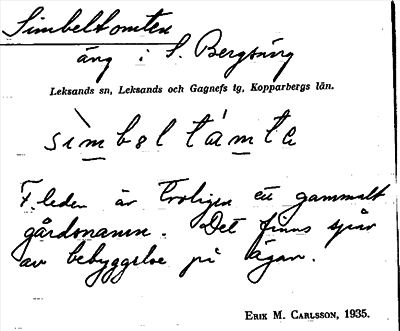 Simbeltomten
äng i S. Bergsäng
Leksands sn, Leksands och Gagnefs tg, Kopparbergs län.
sìmbæltámta
F.leden är troligen ett gammalt
gårdsnamn. Det finns spår
av bebyggelse på ägan.
ERIK M. CARLSSON, 1935.